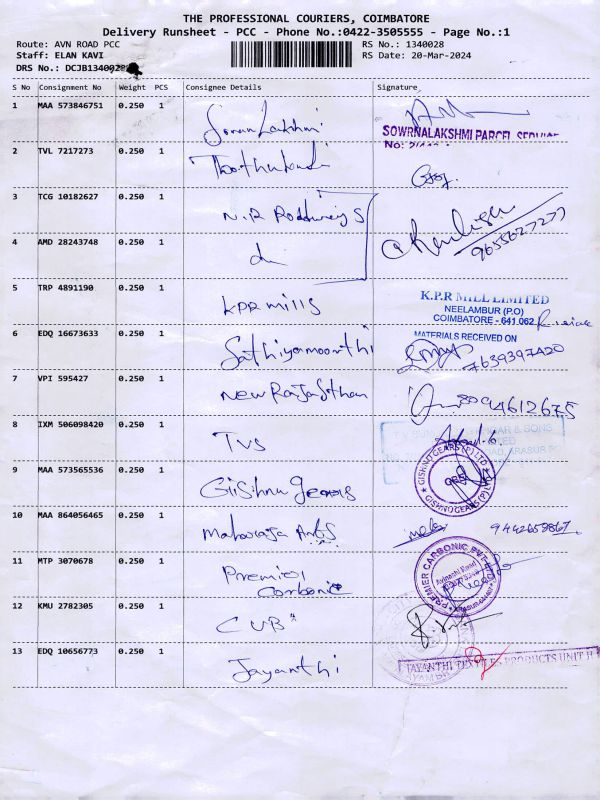 THE PROFESSIONAL COURIERS, COIMBATORE
Delivery Runsheet - PCC - Phone No.:0422-3505555 - Page No.:1
Route: AVN ROAD PCC
RS No.: 1340028
Staff: ELAN KAVI
RS Date: 20-Mar-2024
DRS No.: DCJB1340028
S No Consignment No Weight PCS Consignee Details Signature
1 MAA 573846751 0.250 1
SOWRNALAKSHMI PARCEL SERVICE
2 TVL 7217273 0.250 1
3 TCG 10182627 0.250 1 N.R
9655627277
4 AMD 28243748 0.250 1
5 TRP 4891190 0.250 1 KPR mills
K.P.R MILL LIMITED
NEELAMBUR (P.O)
COIMBATORE - 641 062
MATERIALS RECEIVED ON
6 EDQ 16673633 0.250 1 Sathiyamoorthi
7639397420
7 VPI 595427 0.250 1 New Rajasthan 8094612675
8 IXM 506098420 0.250 1 TVS
& SONS
9 MAA 573565536 0.250 1 Gishnu gears
GISHNU GEARS (P) LTD
10 MAA 864056465 0.250 1 Maharaja Arts
11 MTP 3070678 0.250 1 Premier
Carbonic
PREMIER CARBONIC PVT LTD
12 KMU 2782305 0.250 1 CUB
13 EDQ 10656773 0.250 1 Jayanthi
JAYANTHI TEXTILES PRODUCTS UNIT II